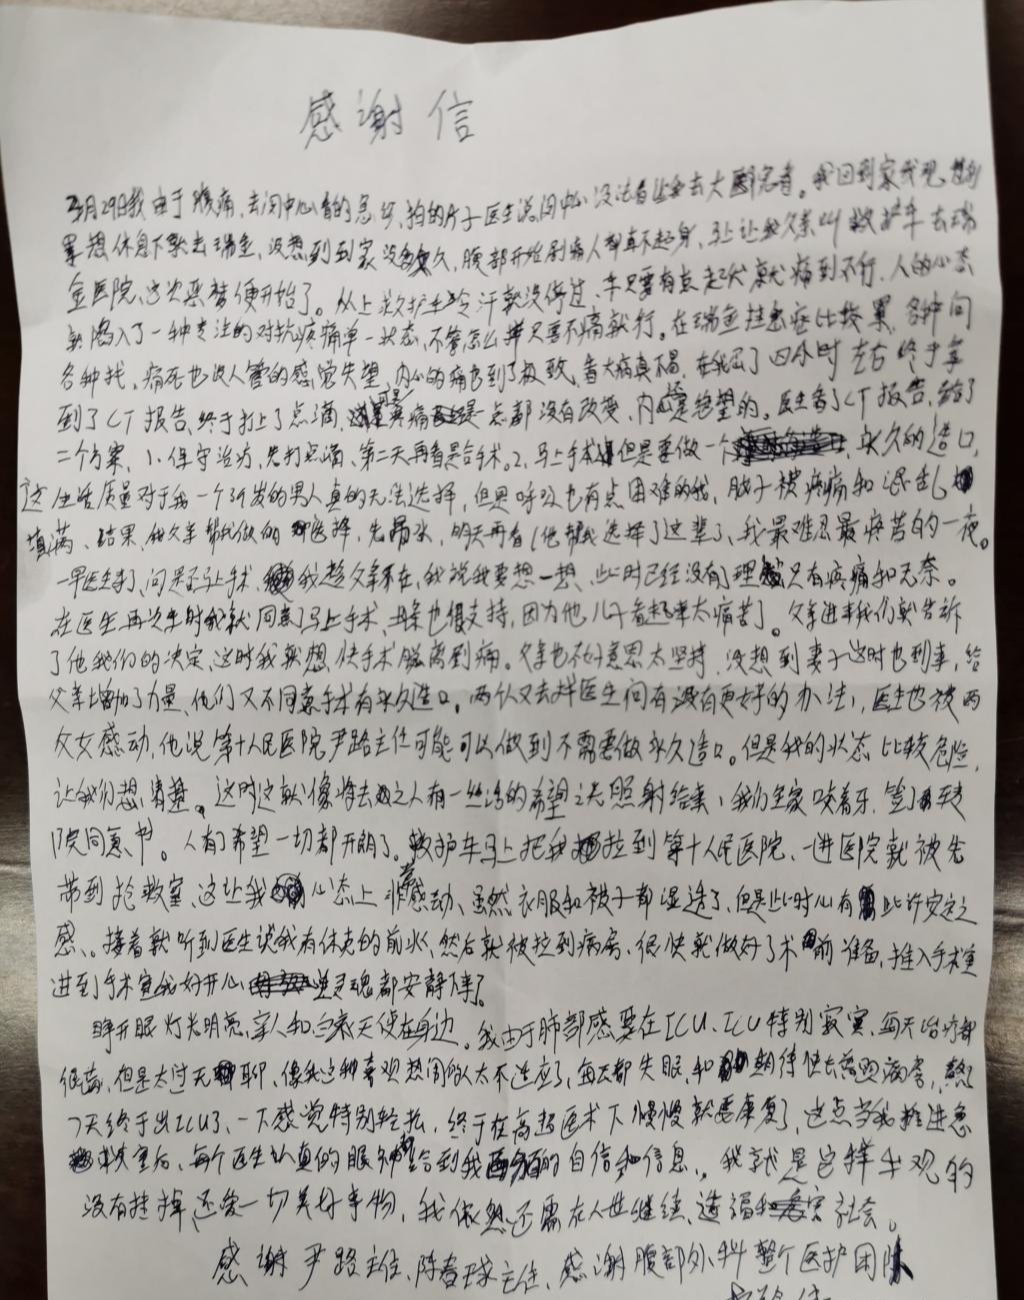 感谢信
3月29日我由于腹痛,去闵中心看的急诊,拍的片子医生说闵中心没法看让我去大医院看。我回到家我觉
累想休息下就去瑞金,没想到到家没多久,腹部开始剧痛人都直不起身,马上让我父亲叫救护车去瑞
金医院,这次恶梦便开始了。从上救护车冷汗就没停过,车只要有点起伏就痛到不行,人的心态
就陷入了一种专注的对抗疼痛单一状态,不管怎么样只要不痛就行。在瑞金挂急症比较累,各种问
各种找,痛死也没人管的感觉失望,内心的痛苦到了极致,看大病真不易,在我等了四小时左右终于拿
到了CT报告,终于打上了点滴,疼痛是一点都没有改变,内心是绝望的。医生看了CT报告,给了
二个方案,1、保守治疗,先打点滴,第二天再看是否手术。2、马上手术但是要做一个永久的造口,
这生活质量对于我一个39岁的男人真的无法选择,但是呼吸也有点困难的我,脑子被疼痛和混乱
填满、结果,我父亲帮我做的选择,先吊水,明天再看(他帮我选择了这辈子、我最难忍最疼苦的一夜。
一早医生来了,问是否马上手术,我趁父亲不在,我说我要想一想,此时已经没有了理智只有疼痛和无奈。
在医生再次来时我就同意了马上手术,母亲也很支持,因为他儿子看起来太痛苦了。父亲进来我们就告诉
了他我们的决定,这时我就想快手术脱离剧痛。父亲也不好意思太坚持,没想到妻子这时也到来,给
父亲增加了力量,他们又不同意手术有永久造口。两个人又去找医生问有没有更好的办法,医生也被两
父女感动,他说第十人民医院尹路主任可能可以做到不需要做永久造口。但是我的状态比较危险,
让我们想清楚。这时这就像将去之人有一丝活的希望之光照射给来,我们全家咬着牙,签了转
院同意书。人有了希望一切都开朗了。救护车马上把我拉到第十人民医院,一进医院就被先
带到抢救室,这让我心态上非常感动、虽然衣服和被子都湿透了,但是此时心有些许安定之
感、接着就听到医生说我有休克的前兆,然后就被拉到病房,很快就做好了术前准备,推入手术室
进到手术室我好开心灵魂都安静下来了
睁开眼灯光明亮,家人和白衣天使在身边。我由于肺部感要在ICU、ICU特别寂寞,每天治疗都
很苦,但是太过无聊,像我这种喜欢热闹的人太不适应了,每天都失眠,和期待快去普通病房,熬了
7天终于出ICU了、一下感觉特别轻松,终于在高超医术下慢慢就要康复了,这点当我推进急
救室后,每个医生认真的眼神给到我的自信和信息,我就是这样乐观的
没有挂掉,还爱一切美好事物,我依然还需在人世继续造福社会。
感谢尹路主任、陈春球主任、感谢腹部外科整个医护团队